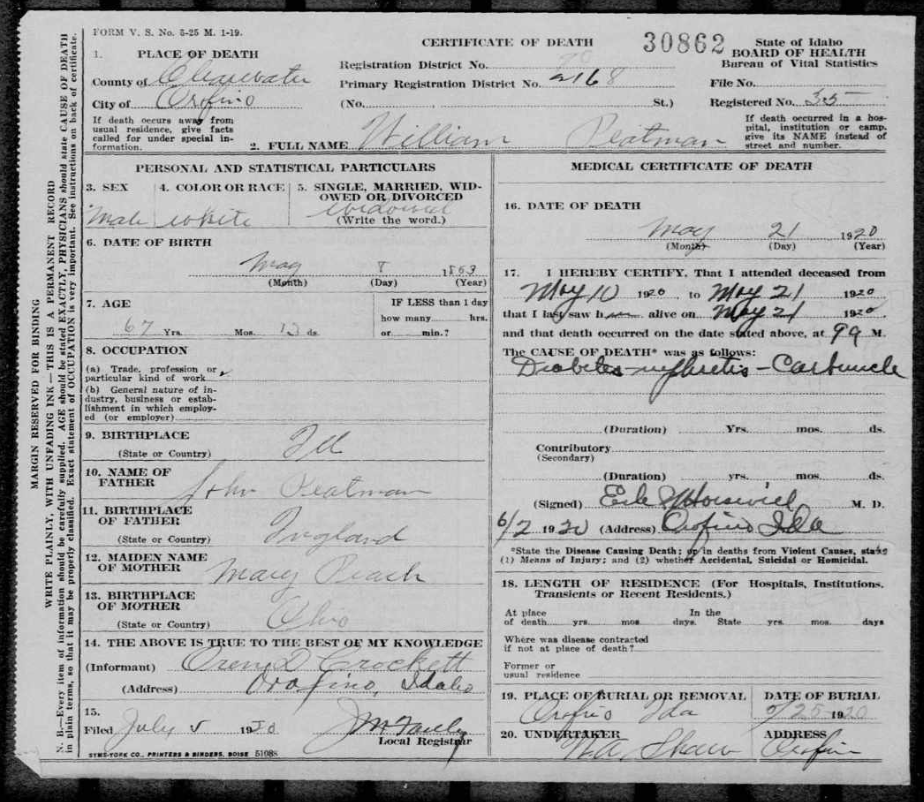 FORM V. S. No. 5-25 M. 1-19.
CERTIFICATE OF DEATH
30862
State of Idaho
BOARD OF HEALTH
Bureau of Vital Statistics
1. PLACE OF DEATH
County of Clearwater
City of Orofino
Registration District No.
Primary Registration District No. 2168
(No. , St.)
File No.
Registered No. 35
If death occurs away from
usual residence, give facts
called for under special in-
formation.
2. FULL NAME William Peatman
If death occurred in a hos-
pital, institution or camp.
give its NAME instead of
street and number.
MARGIN RESERVED FOR BINDING
WRITE PLAINLY, WITH UNFADING INK—THIS IS A PERMANENT RECORD
N. B.—Every item of information should be carefully supplied. AGE should be stated EXACTLY, PHYSICIANS should state CAUSE OF DEATH
in plain terms, so that it may be properly classified. Exact statement of OCCUPATION is very important. See instructions on back of certificate.
PERSONAL AND STATISTICAL PARTICULARS
3. SEX
Male
4. COLOR OR RACE
White
5. SINGLE, MARRIED, WID-
OWED OR DIVORCED
Widowed
(Write the word.)
6. DATE OF BIRTH
May 8 1853
(Month) (Day) (Year)
7. AGE
67 Yrs. Mos. 13 ds.
IF LESS than 1 day
how many hrs.
or min.?
8. OCCUPATION
(a) Trade, profession or
particular kind of work
(b) General nature of in-
dustry, business or estab-
lishment in which employ-
ed (or employer)
9. BIRTHPLACE
(State or Country) Ill
10. NAME OF
FATHER John Peatman
11. BIRTHPLACE
OF FATHER
(State or Country) England
12. MAIDEN NAME
OF MOTHER Mary Peach
13. BIRTHPLACE
OF MOTHER
(State or Country) Ohio
14. THE ABOVE IS TRUE TO THE BEST OF MY KNOWLEDGE
(Informant) Oren D Crockett
(Address) Orofino, Idaho
15.
Filed July 5 1920
Local Registrar
SYMS-YORK CO., PRINTERS & BINDERS, BOISE 51088
MEDICAL CERTIFICATE OF DEATH
16. DATE OF DEATH
May 21 1920
(Month) (Day) (Year)
17. I HEREBY CERTIFY, That I attended deceased from
May 10 1920 to May 21 1920
that I last saw him alive on May 21 1920
and that death occurred on the date stated above, at M.
The CAUSE OF DEATH* was as follows:
Diabetes-nephretis-Carbuncle
(Duration) Yrs. mos. ds.
Contributory
(Secondary)
(Duration) yrs. mos. ds.
(Signed) M. D.
6/2 1920 (Address) Orofino Ida
*State the Disease Causing Death; or in deaths from Violent Causes, state
(1) Means of Injury; and (2) whether Accidental, Suicidal or Homicidal.
18. LENGTH OF RESIDENCE (For Hospitals, Institutions,
Transients or Recent Residents.)
At place of death yrs. mos. days. In the State yrs. mos. days
Where was disease contracted
if not at place of death?
Former or
usual residence
19. PLACE OF BURIAL OR REMOVAL
Orofino Ida
DATE OF BURIAL
5/25 1920
20. UNDERTAKER
W.A. Shaw
ADDRESS
Orofino